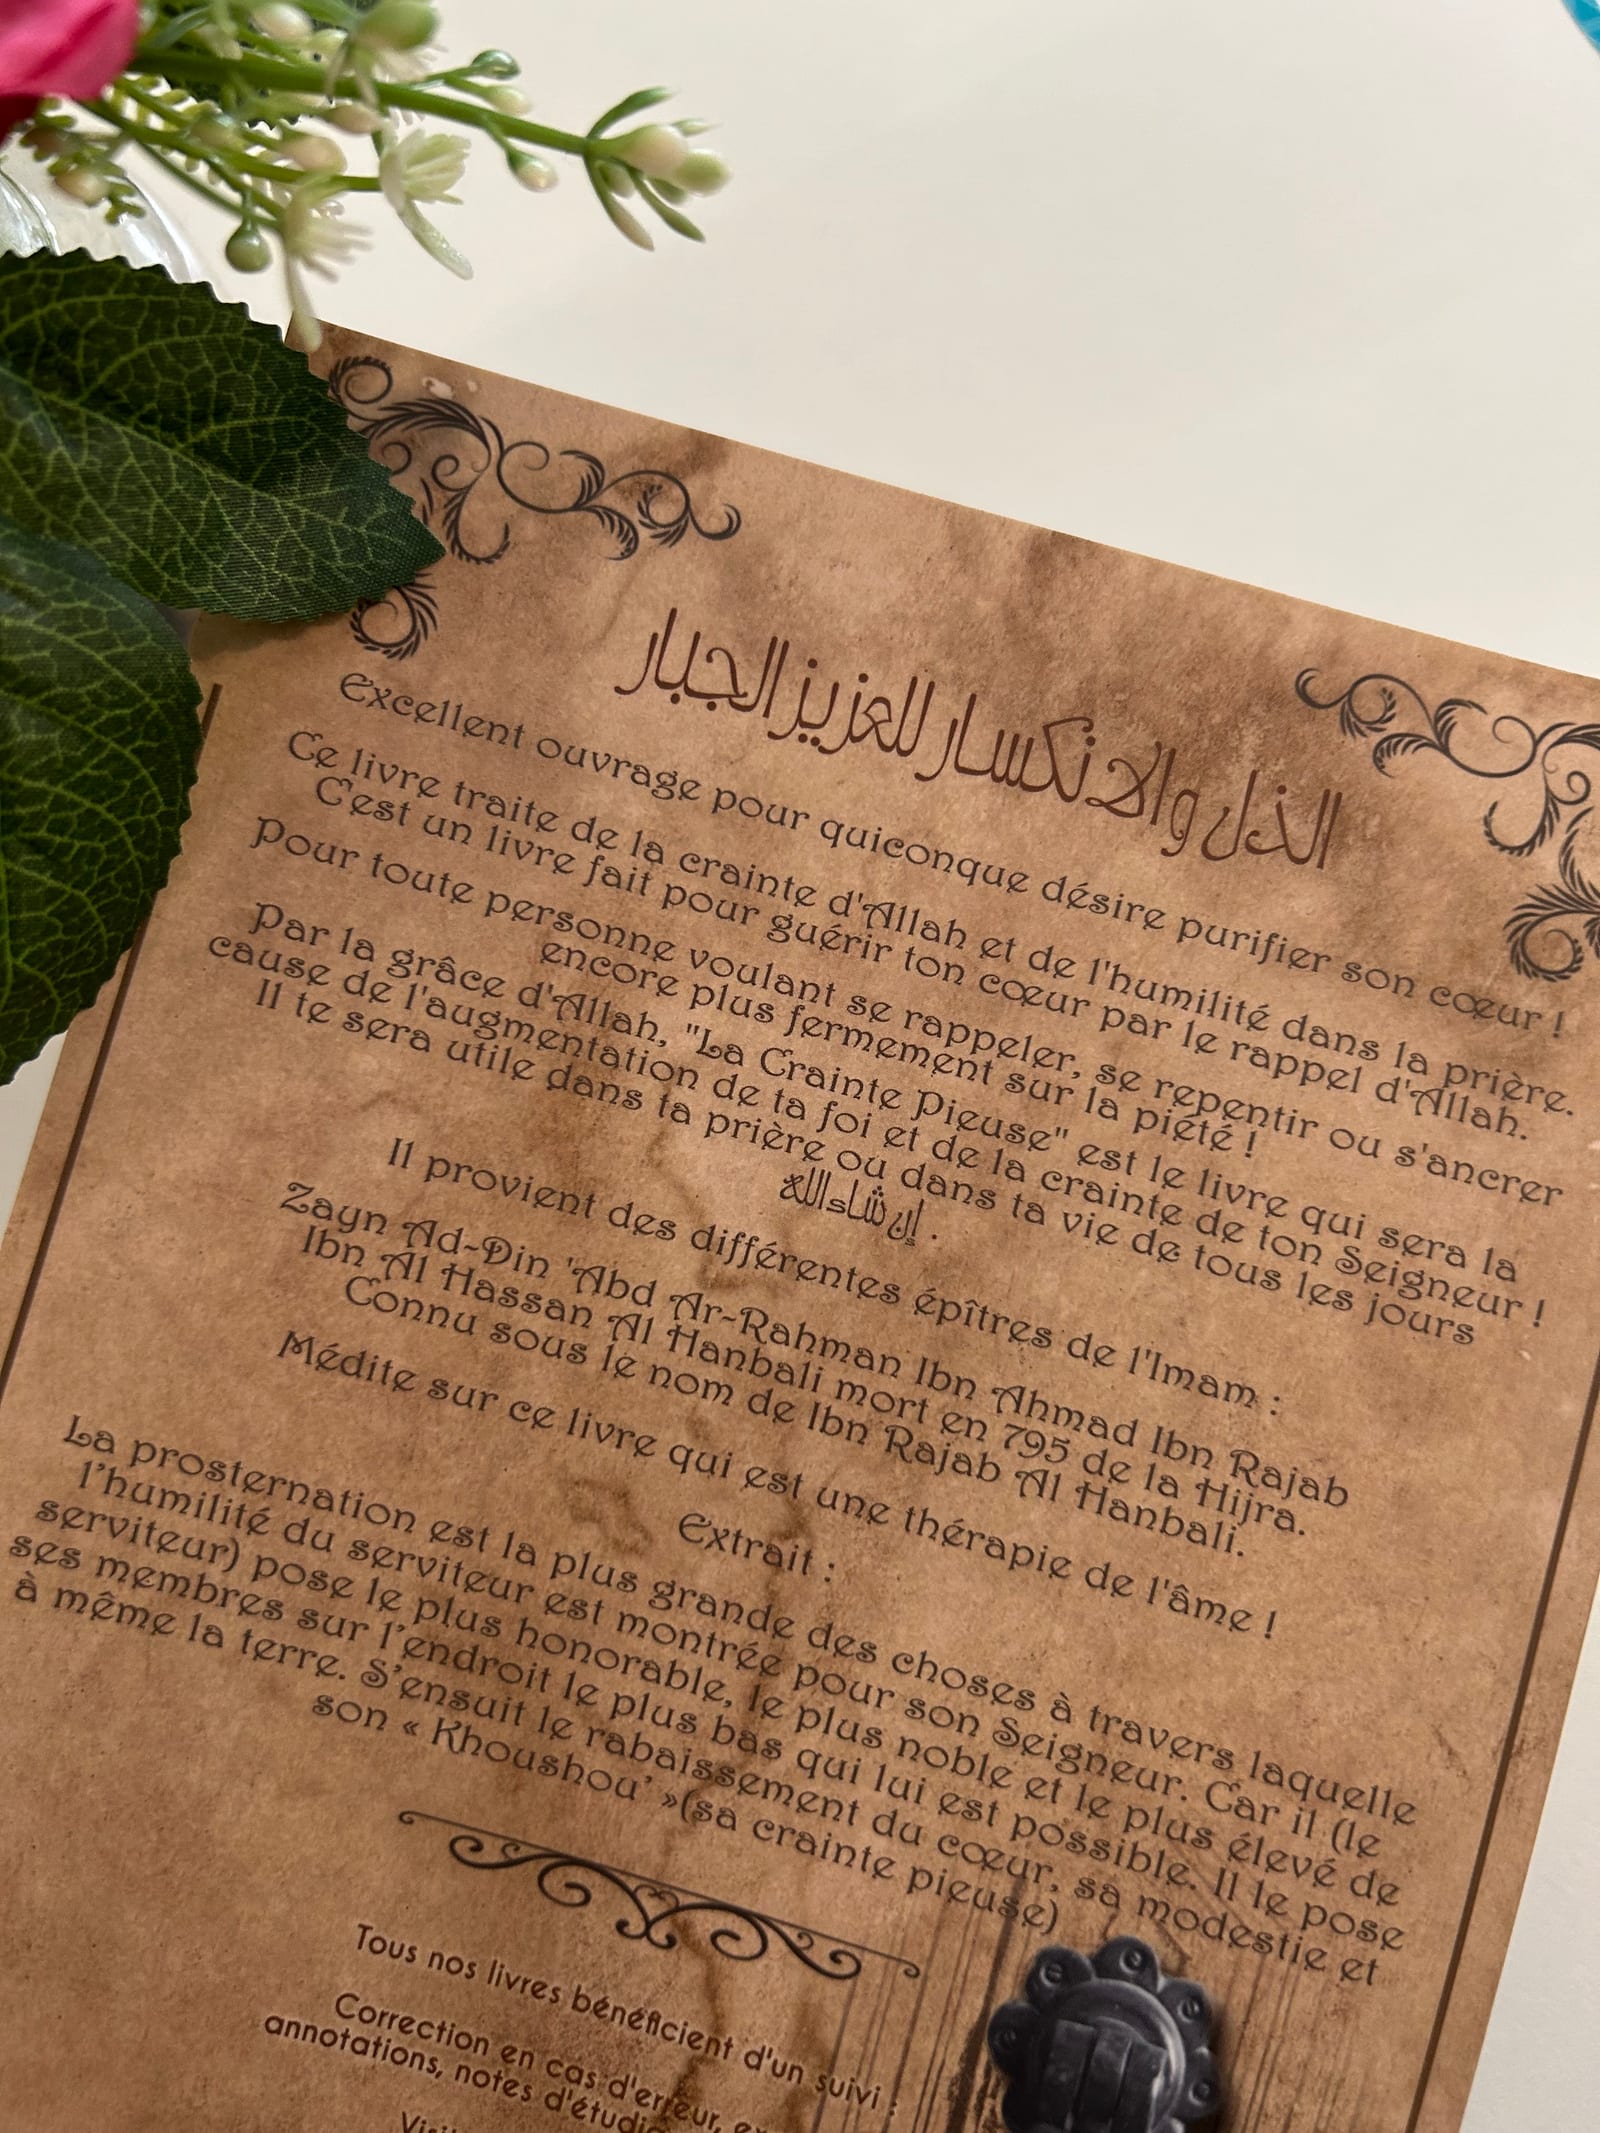 الذل والانكسار للعزيز الجبار
Excellent ouvrage pour quiconque désire purifier son cœur !
Ce livre traite de la crainte d'Allah et de l'humilité dans la prière.
C'est un livre fait pour guérir ton cœur par le rappel d'Allah.
Pour toute personne voulant se rappeler, se repentir ou s'ancrer
encore plus fermement sur la piété !
Par la grâce d'Allah, "La Crainte Pieuse" est le livre qui sera la
cause de l'augmentation de ta foi et de la crainte de ton Seigneur !
Il te sera utile dans ta prière ou dans ta vie de tous les jours
إن شاء الله .
Il provient des différentes épîtres de l'Imam :
Zayn Ad-Din 'Abd Ar-Rahman Ibn Ahmad Ibn Rajab
Ibn Al Hassan Al Hanbali mort en 795 de la Hijra.
Connu sous le nom de Ibn Rajab Al Hanbali.
Médite sur ce livre qui est une thérapie de l'âme !
Extrait :
La prosternation est la plus grande des choses à travers laquelle
l’humilité du serviteur est montrée pour son Seigneur. Car il (le
serviteur) pose le plus honorable, le plus noble et le plus élevé de
ses membres sur l’endroit le plus bas qui lui est possible. Il le pose
à même la terre. S’ensuit le rabaissement du cœur, sa modestie et
son « Khoushou’ »(sa crainte pieuse)
Tous nos livres bénéficient d'un suivi :
Correction en cas d'erreur,
annotations, notes